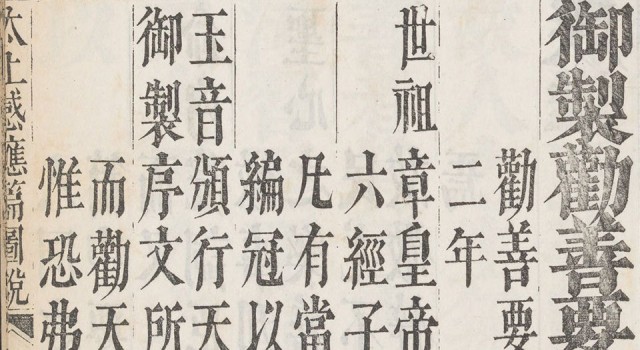 御製勸善要
勸善要
二年
世祖章皇帝
六經子
凡有當
編冠以
玉音頒行天
御製序文所
而勸天
惟恐弗
太上感應篇圖說